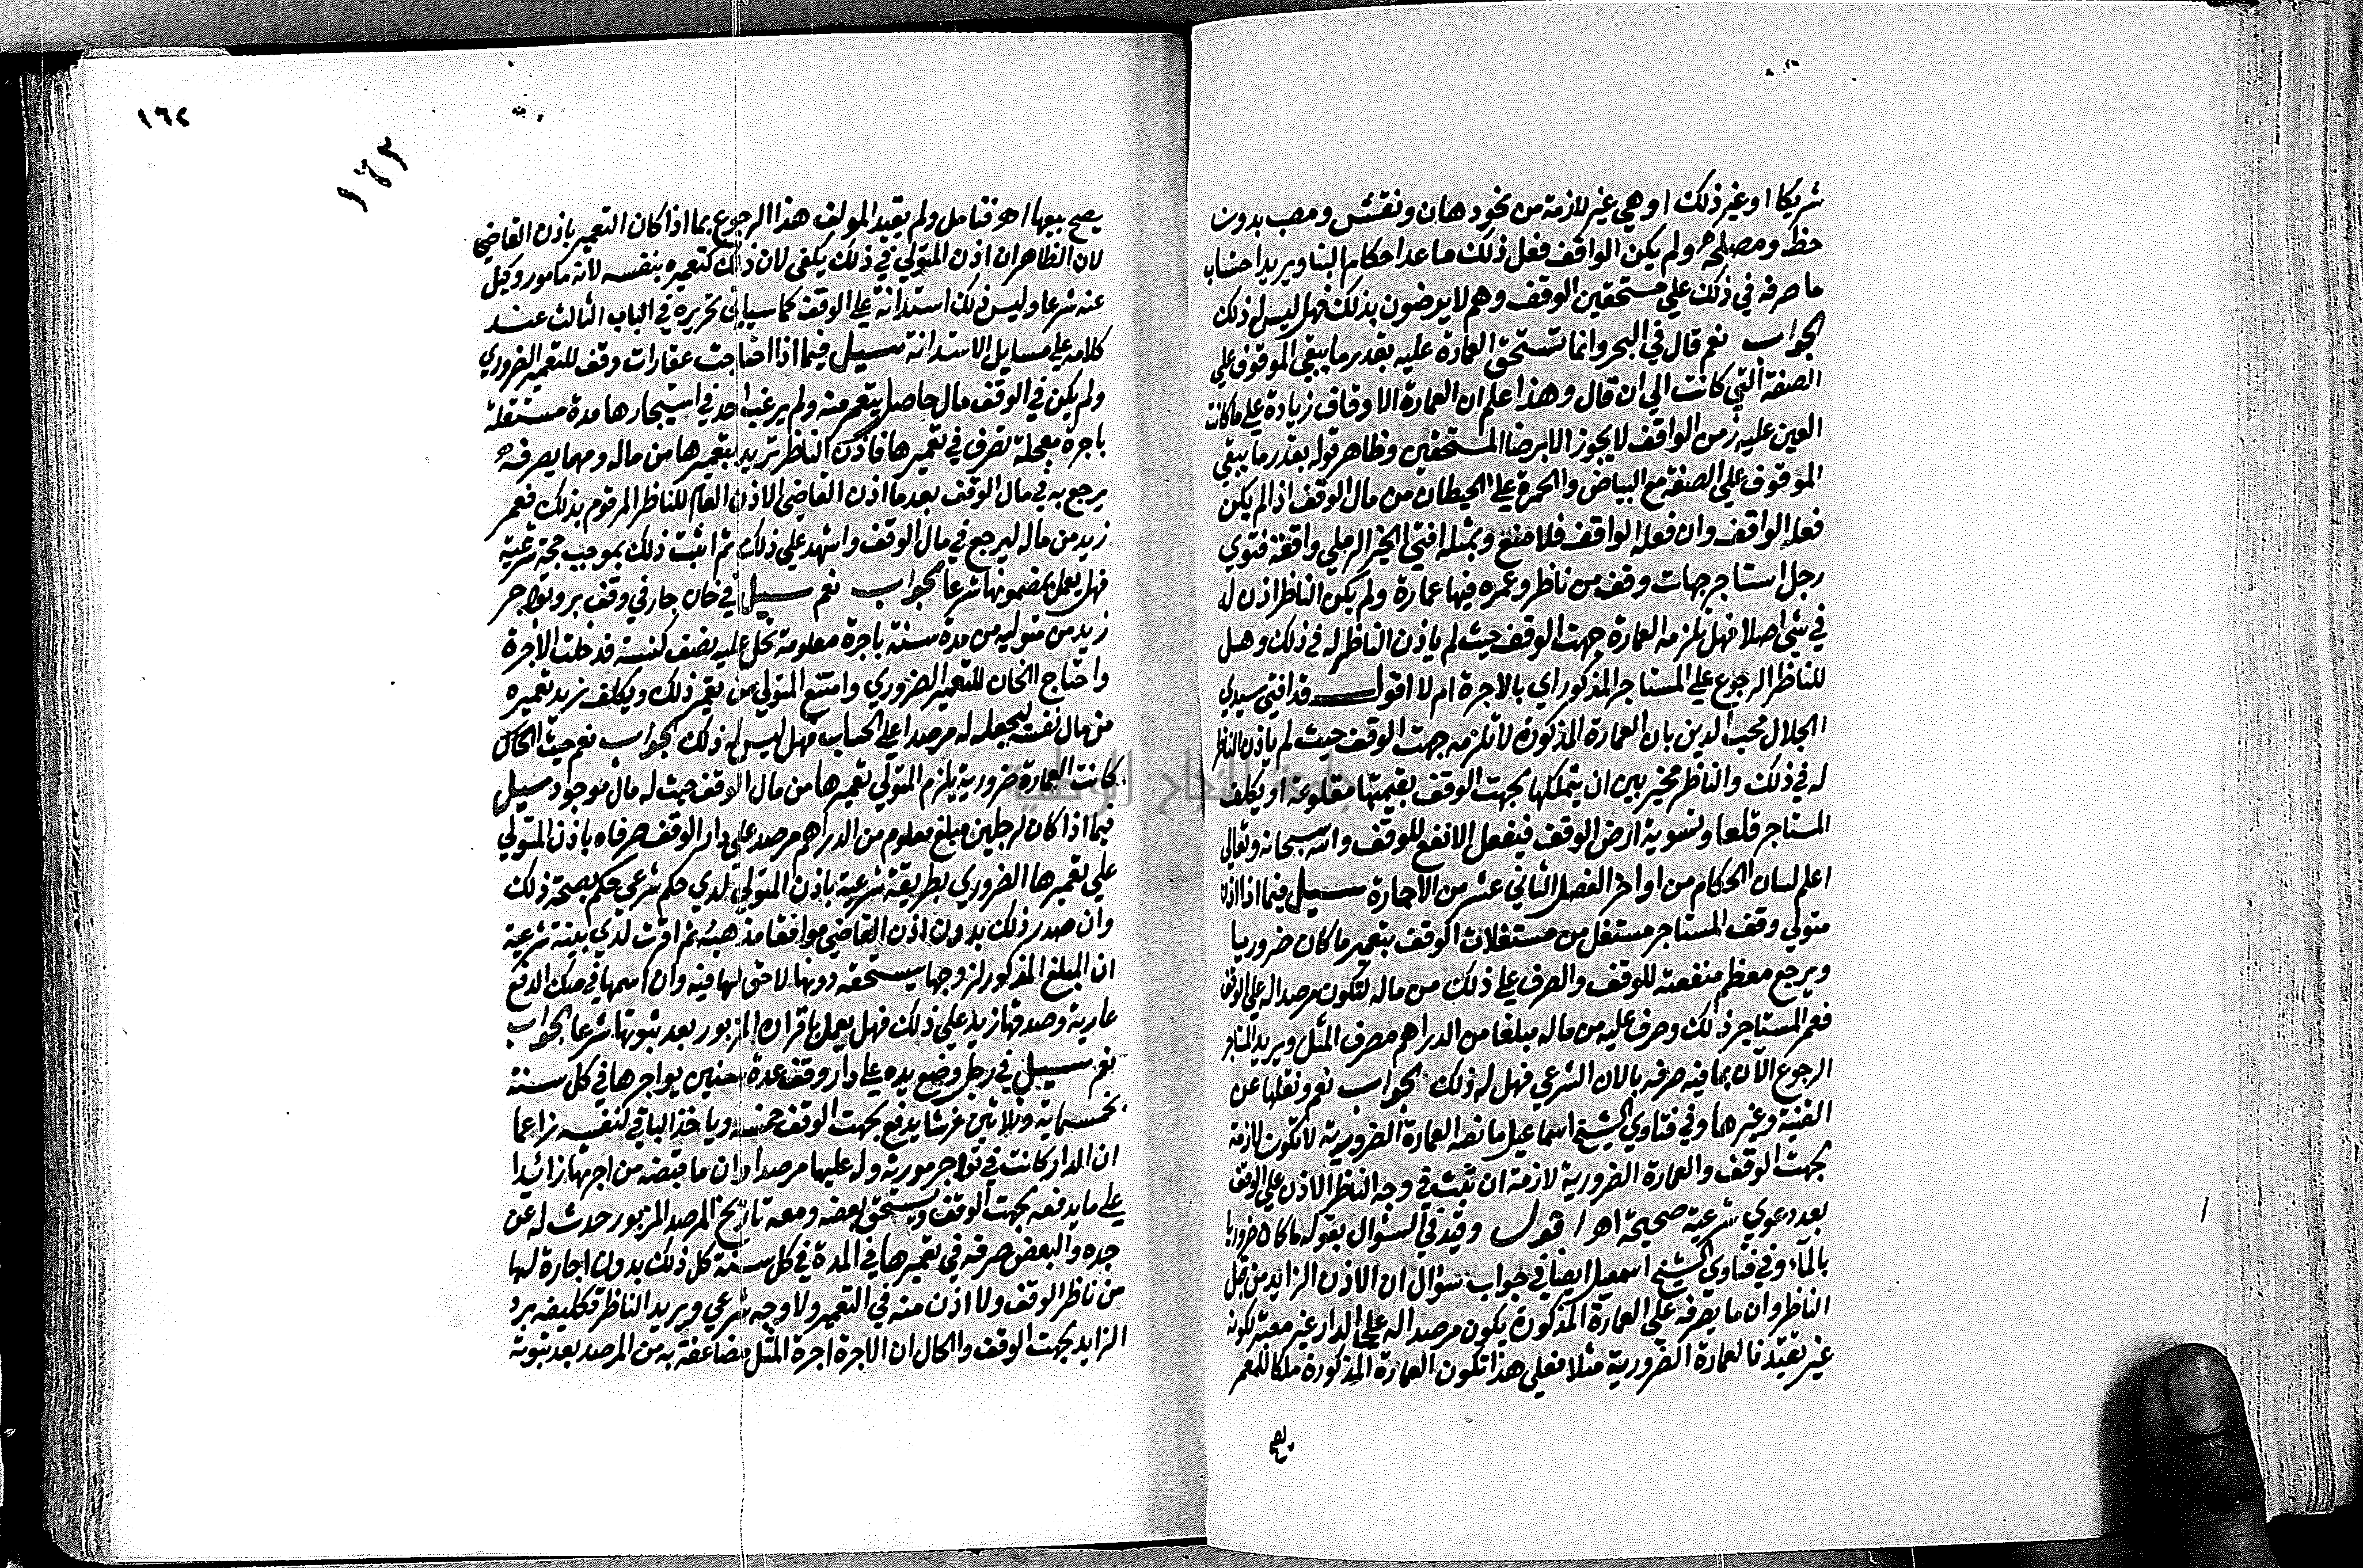 شريكا او غير ذلك او هي غير لازمة من نحو دهان ونقش وصب بدون
حظ ومصلحة ولم يكن الواقف فعل ذلك ما عدا احكام البنا ويريد احتساب
ما صرفه في ذلك علي مستحقين الوقف وهم لا يرضون بذلك فهل ليس له ذلك
الجواب نعم قال في البحر وانما تستحق العمارة عليه بقدر ما يبقي الموقوف علي
الصفة التي كانت الي ان قال وهذا علم ان العمارة الاوقاف زيادة علي ما كانت
العين عليه زمن الواقف لا يجوز الا برضا المستحقين وظاهر قوله بقدر ما يبقي
الموقوف علي الصفة مع البياض والحمرة علي الحيطان من مال الوقف اذا لم يكن
فعله الواقف وان فعله الواقف فلا منع وبمثله افتي الخير الرملي واقعة فتوي
رجل استاجر جهات وقف من ناظر وعمره فيها عمارة ولم يكن الناظر اذن له
في شي اصلا فهل تلزمه العمارة جهت الوقف حيث لم ياذن الناظر له في ذلك وهل
للناظر الرجوع علي المستاجر المذكور اي بالاجرة ام لا اقول قد افتي سيدي
الجلال محب الدين بان العمارة المذكورة لا تلزمه جهت الوقف حيث لم ياذن الناظر
له في ذلك والناظر مخير بين ان يتملكها لجهت الوقف بقيمتها مقلوعة او يكلف
المستاجر قلعها وتسوية ارض الوقف فيفعل الانفع للوقف والله سبحانه وتعالي
اعلم لسان الحكام من اواخر الفصل الثاني عشر من الاجارة سيل فيما اذا اذن
متولي وقف المستاجر مستغل من مستغلات الوقف بتعمير ما كان ضروريا
ويرجع معظم منفعته للوقف والصرف علي ذلك من ماله لتكون مرصدا له علي الوقف
فعمر المستاجر ذلك وصرف عليه من ماله مبلغا من الدراهم مصرف المثل ويريد المستاجر
الرجوع الآن بما فيه صرفه بالاذن الشرعي فهل له ذلك الجواب نعم ونقلها عن
القنية وغيرها وفي فتاوي الشيخ اسماعيل ما نصه العمارة الضرورية لا تكون لازمة
لجهت الوقف والعمارة الضرورية لازمة ان تثبت في وجه الناظر الاذن علي الوقف
بعد دعوي شرعية صحيحة اهـ اقول وقيد في السؤال بقوله ما كان ضروريا
بالماء وفي فتاوي الشيخ اسمعيل ايضا في جواب سؤال ان الاذن الزايد من قبل
الناظر وان ما يصرفه علي العمارة المذكورة يكون مرصدا له علي الدار غير معتبر لكونه
غير تقيد نا لعمارة الضرورية مثلا فعلي هذا تكون العمارة المذكورة ملكا للمعمر
يصح
١٦٢
١٦٢
يصح بيعها اهـ فتامل ولم يقيد المولف هذا الرجوع بما اذا كان التعمير باذن القاضي
لان الظاهر ان اذن المتولي في ذلك يكفي لان ذلك كتعميره بنفسه لانه مامور وكيل
عنه شرعا وليس ذلك استدانة علي الوقف كما سياتي تحريره في الباب الثالث عند
كلامه علي مسايل الاستدانة سيل فيما اذا احتاجت عقارات وقف للتعمير الضروري
ولم يكن في الوقف مال حاصل يتعمر منه ولم يرغب احد في استيجارها مدة مستقلة
باجرة معجلة تصرف في تعميرها فاذن الناظر لزيد بتعميرها من ماله ومهما يصرفه
يرجع به في مال الوقف بعدما اذن القاضي الاذن العام للناظر المرقوم بذلك فعمر
زيد من ماله ليرجع في مال الوقف واشهد علي ذلك ثم اثبت ذلك بموجب حجة شرعية
فهل يعمل بمضمونها شرعا الجواب نعم سيل في خان جار في وقف بر وتواجر
زيد من متوليه من مدة سنة باجرة معلومة تحل عليه بنصف السنة فدخلت الاجرة
واحتاج الخان للتعمير الضروري وامتنع المتولي من تعمير ذلك ويكلف زيد تعميره
من مال نفسه ليجعله له مرصدا علي الحساب فهل ليس له ذلك الجواب نعم حيث الحال
كانت العمارة ضرورية يلزم المتولي تعميرها من مال الوقف حيث له مال موجود سيل
فيما اذا كان لرجلين مبلغ معلوم من الدراهم مرصد علي دار الوقف صرفاه باذن المتولي
علي تعميرها الضروري بطريقة شرعية باذن المتولي لدي حكم شرعي حكم بصحة ذلك
وان صدر ذلك بدون اذن القاضي موافقا مذهبه ثم اقرت لدي بينة شرعية
ان المبلغ المذكور لزوجها يستحقه دونها لا حق لها فيه وان اسمها في صك الدفع
عارية وصدقها زيد علي ذلك فهل يعمل باقراره المزبور بعد ثبوتها شرعا الجواب
نعم سيل في رجل وضع يده علي دار وقف عدة سنين يواجرها في كل سنة
بخمسماية وثلاثين غرشا يدفع لجهت الوقف خمسة وياخذ الباقي لنفسه زاعما
ان الدار كانت في تواجر مورثه وله عليها مرصدا وان ما قبضه من اجرتها زائدا
علي ما يدفعه لجهت الوقف ويستحق بعضه ومعه تاريخ المرصد المزبور حدث له عن
جده والبعض صرفه في تعميرها في المدة في كل سنة كل ذلك بدون اجارة لها
من ناظر الوقف ولا اذن منه في التعمير ولا وجه شرعي ويريد الناظر تكليفه برد
الزايد لجهت الوقف والحال ان الاجرة اجرة المثل مضاعفة به من المرصد بعد ثبوته
جامعة النجاح الوطنية